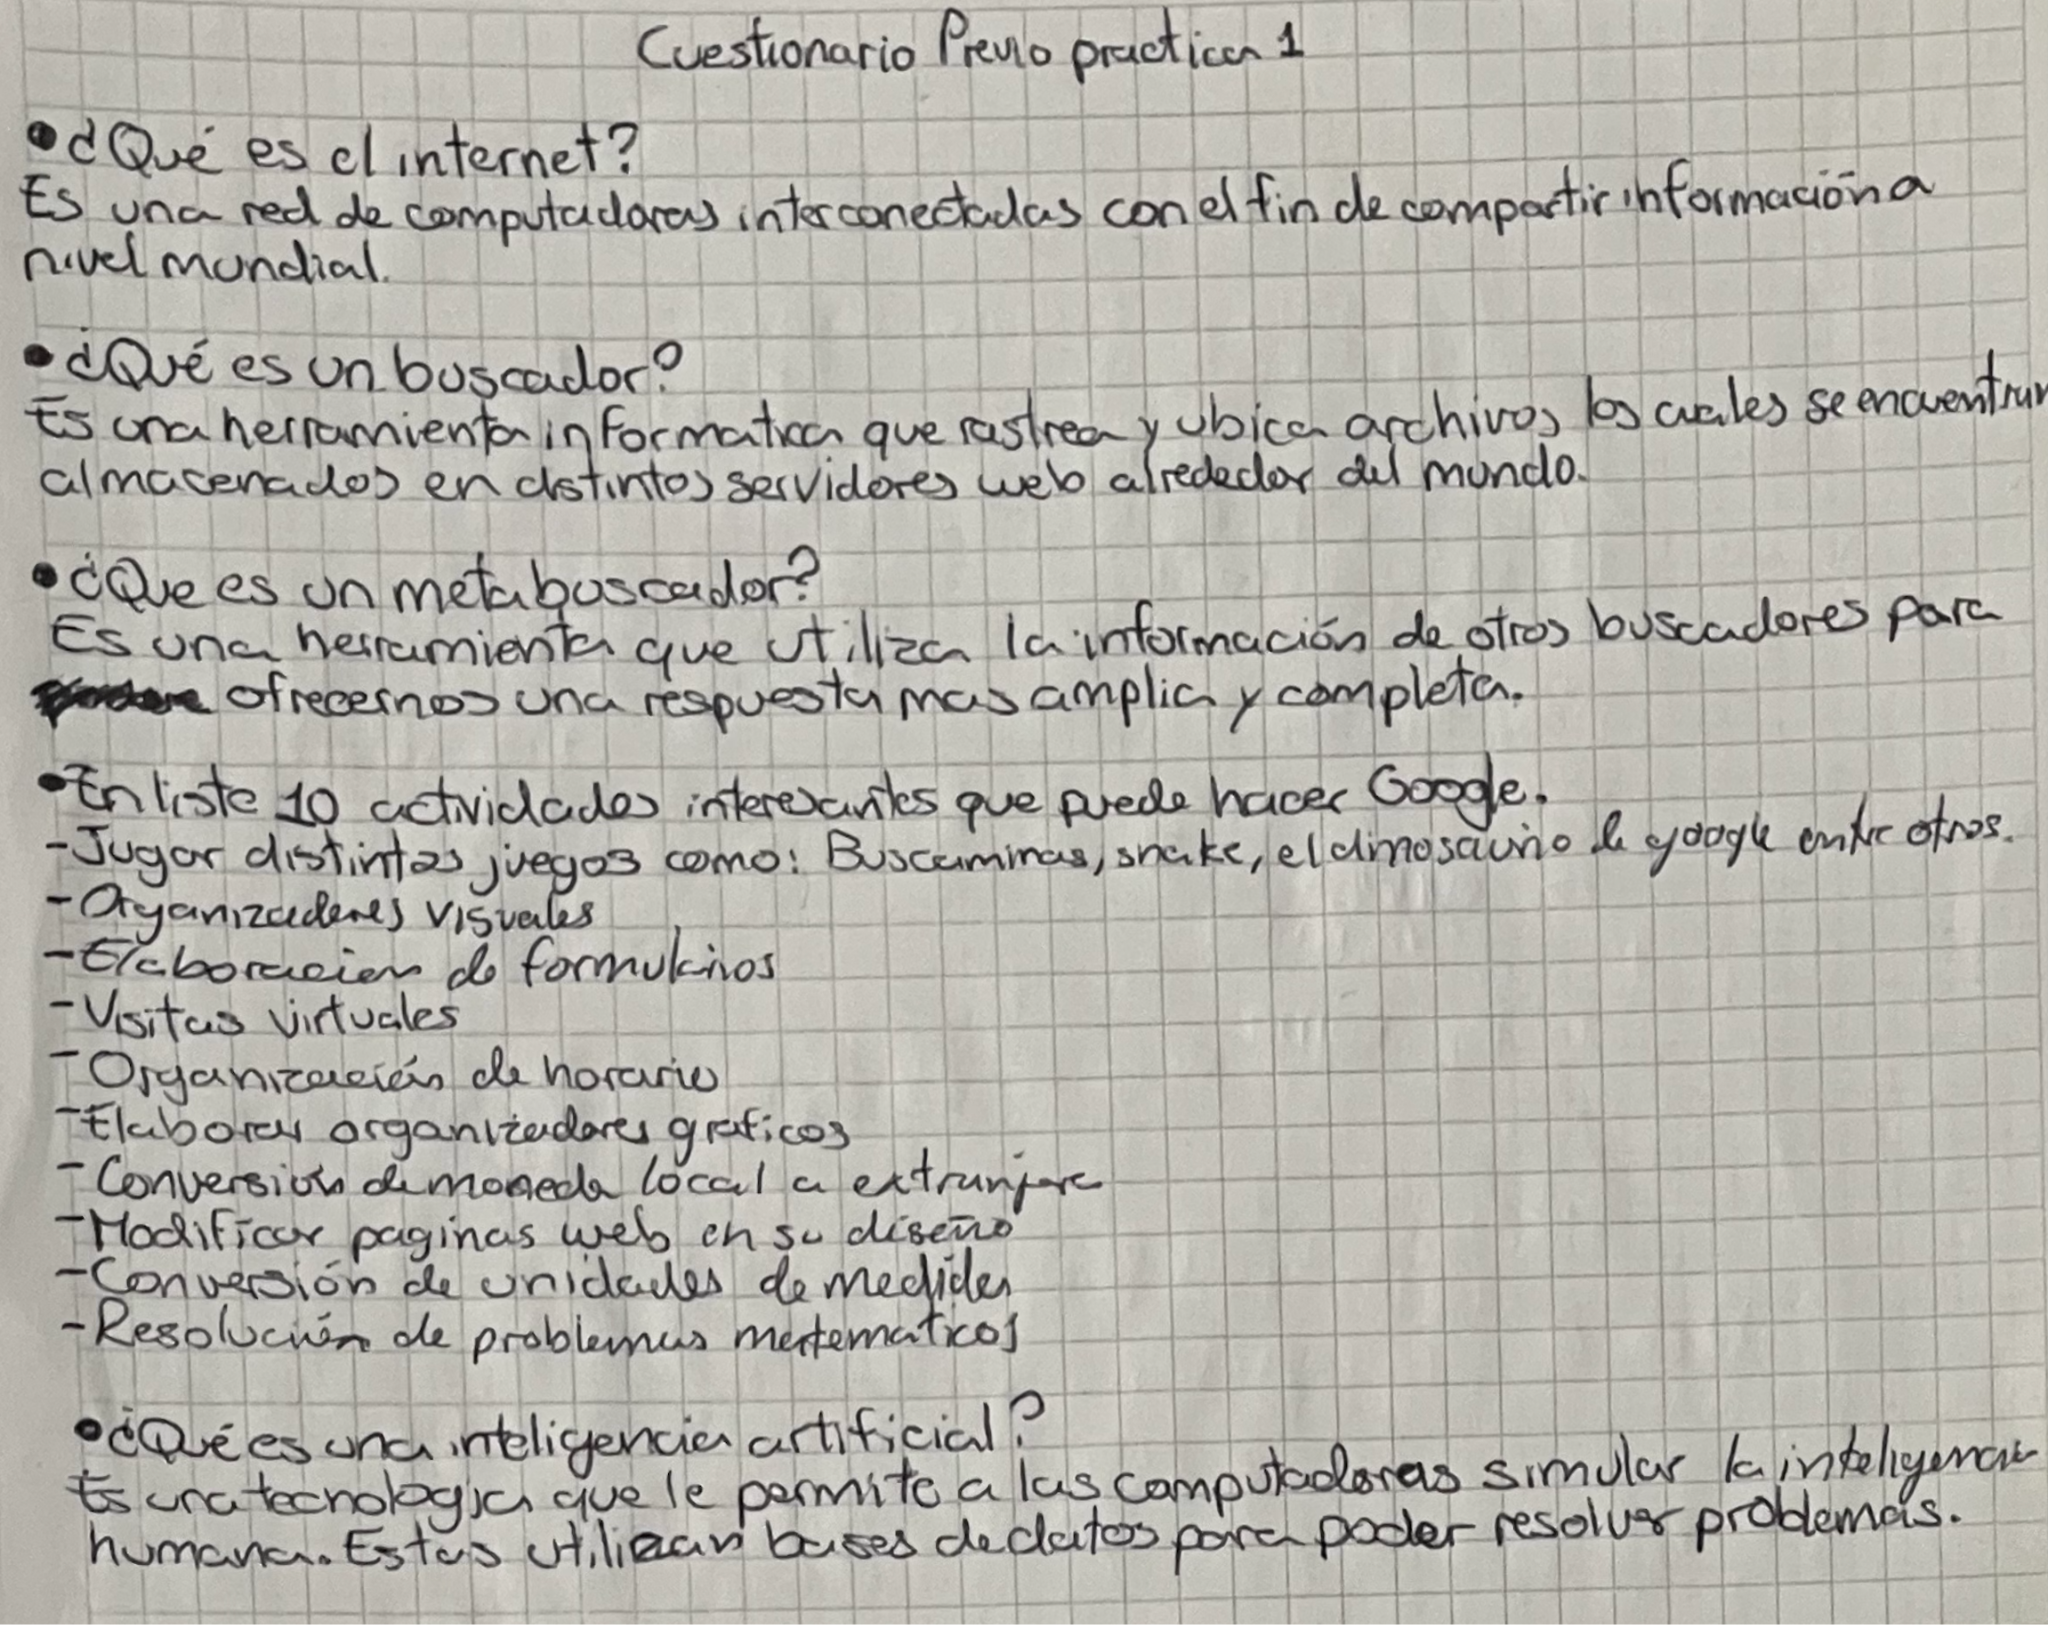 Cuestionario Previo practica 1
• ¿Qué es el internet?
Es una red de computadoras interconectadas con el fin de compartir información a
nivel mundial.
• ¿Qué es un buscador?
Es una herramienta informatica que rastrea y ubica archivos los cuales se encuentran
almacenados en distintos servidores web alrededor del mundo.
• ¿Que es un metabuscador?
Es una herramienta que utiliza la información de otros buscadores para
ofrecernos una respuesta mas amplia y completa.
• Enliste 10 actividades interesantes que puede hacer Google.
- Jugar distintos juegos como: Buscaminas, snake, el dinosaurio de google entre otros.
- Organizadores visuales
- Elaboracion de formularios
- Visitas virtuales
- Organización de horario
- Elaborar organizadores graficos
- Conversión de moneda local a extranjera
- Modificar paginas web en su diseño
- Conversión de unidades de medida
- Resolución de problemas matematicos
• ¿Qué es una inteligencia artificial?
Es una tecnologia que le permite a las computadoras simular la inteligencia
humana. Estas utilizan bases de datos para poder resolver problemas.